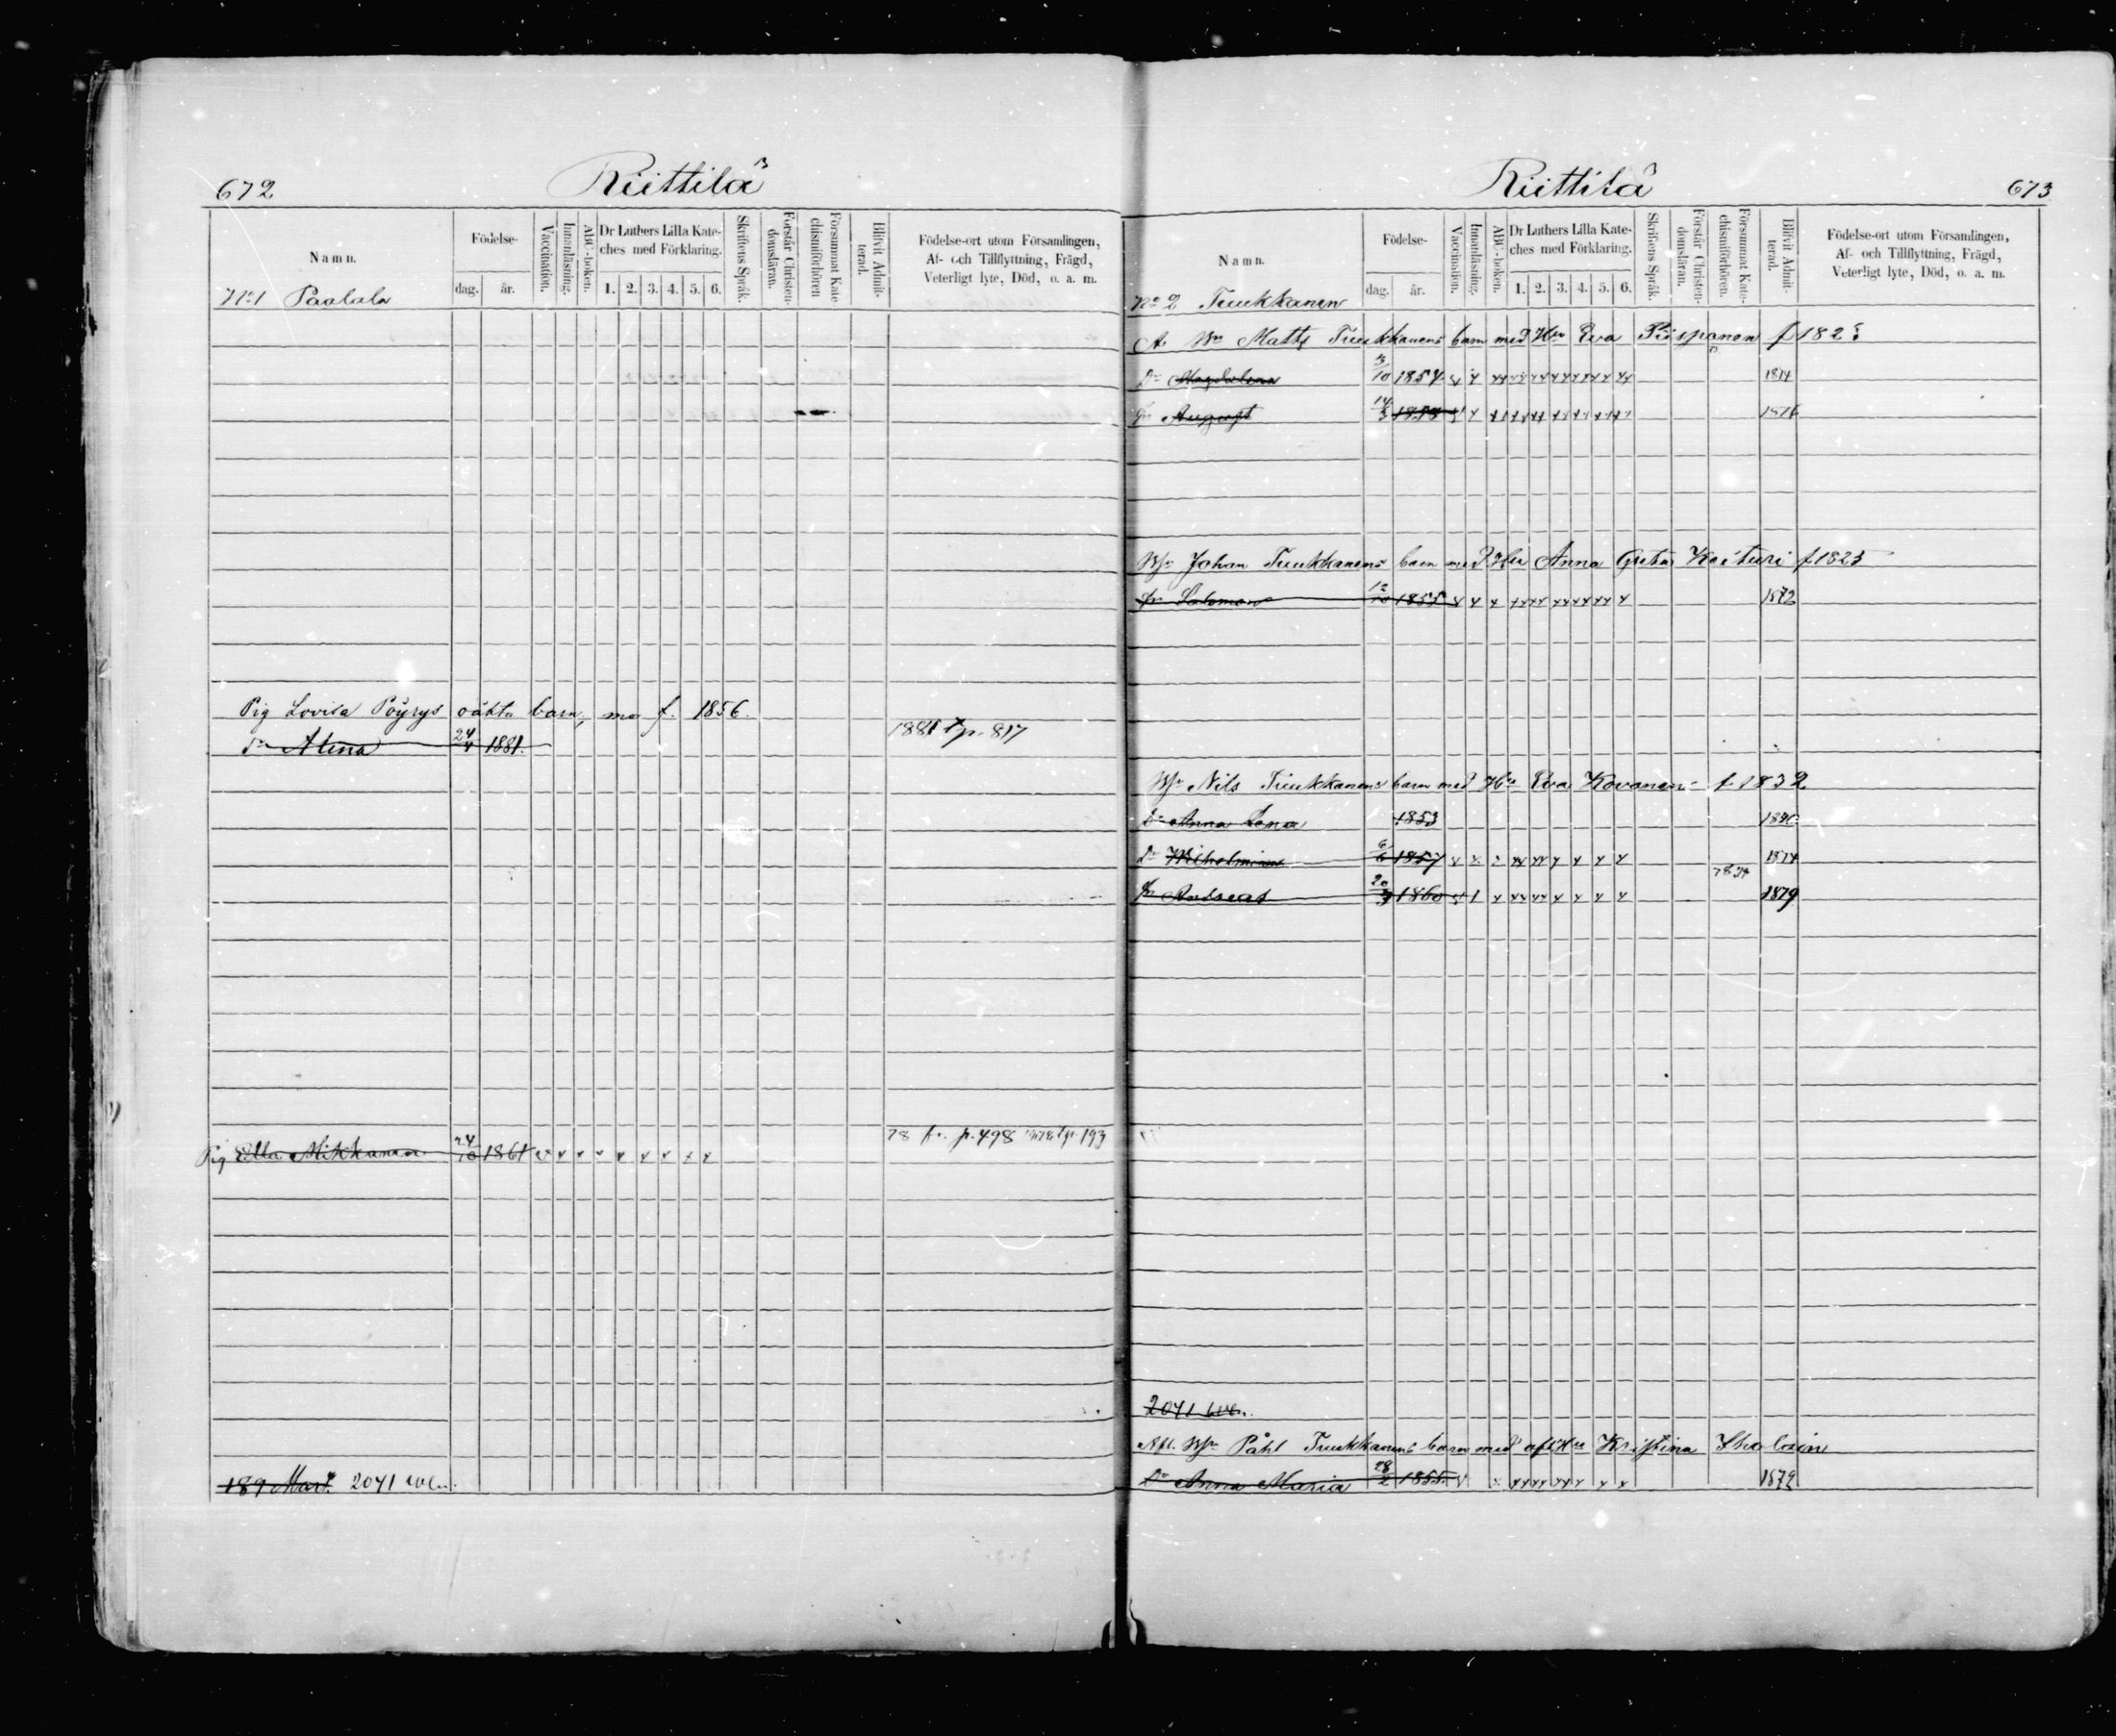 672
Riittilä
Namn.
Födelse-
dag. år.
Vaccination.
Innanläsning.
ABC-boken.
Dr Luthers Lilla Kate-
ches med Förklaring.
1. 2. 3. 4. 5. 6.
Skriftens Språk.
Förstår Christen-
domsläran.
Försummat Kate
chismiförhören
Blifvit Admit-
terad.
Födelse-ort utom Församlingen,
Af- och Tillflyttning, Frägd,
Veterligt lyte, Död, o. a. m.
No 1 Paalala
Pig Lovisa Pöyrys oäkta barn, mo. f. 1856.
Dr Alina 24/4 1881. 1881 t p. 817
Pig Ella Mikkanen 24/10 1861 78 fr. p. 498 193
189 Mant. 2041
Riittilä
673
Namn.
Födelse-
dag. år.
Vaccination.
Innanläsning.
ABC-boken.
Dr Luthers Lilla Kate-
ches med Förklaring.
1. 2. 3. 4. 5. 6.
Skriftens Språk.
Förstår Christen-
domsläran.
Försummat Kate-
chismiförhören.
Blifvit Admit-
terad.
Födelse-ort utom Församlingen,
Af- och Tillflyttning, Frägd,
Veterligt lyte, Död, o. a. m.
No 2 Tuukkanen
Matts Tuukkanens barn med Hu Eva Piispanen f 182
Dr Magdalena /10 1854 1874
Sn August 14/3 1858 1876
Johan Tuukkanens barn med Hu Anna Greta Koituri f 1825
Sn Salomon 12/10 1855 1872
Nils Tuukkanens barn med Hu Eva Kovanen f. 1832
Dr Anna Lena 1853
Dr Wilhelmina 6/6 1857 1874
Sn Andreas 20/3 1860 1879
2041
Afl. Påhl Tuukkanens barn med afl Hu Kristina Ihalain
Dr Anna Maria 28/2 1855 1872